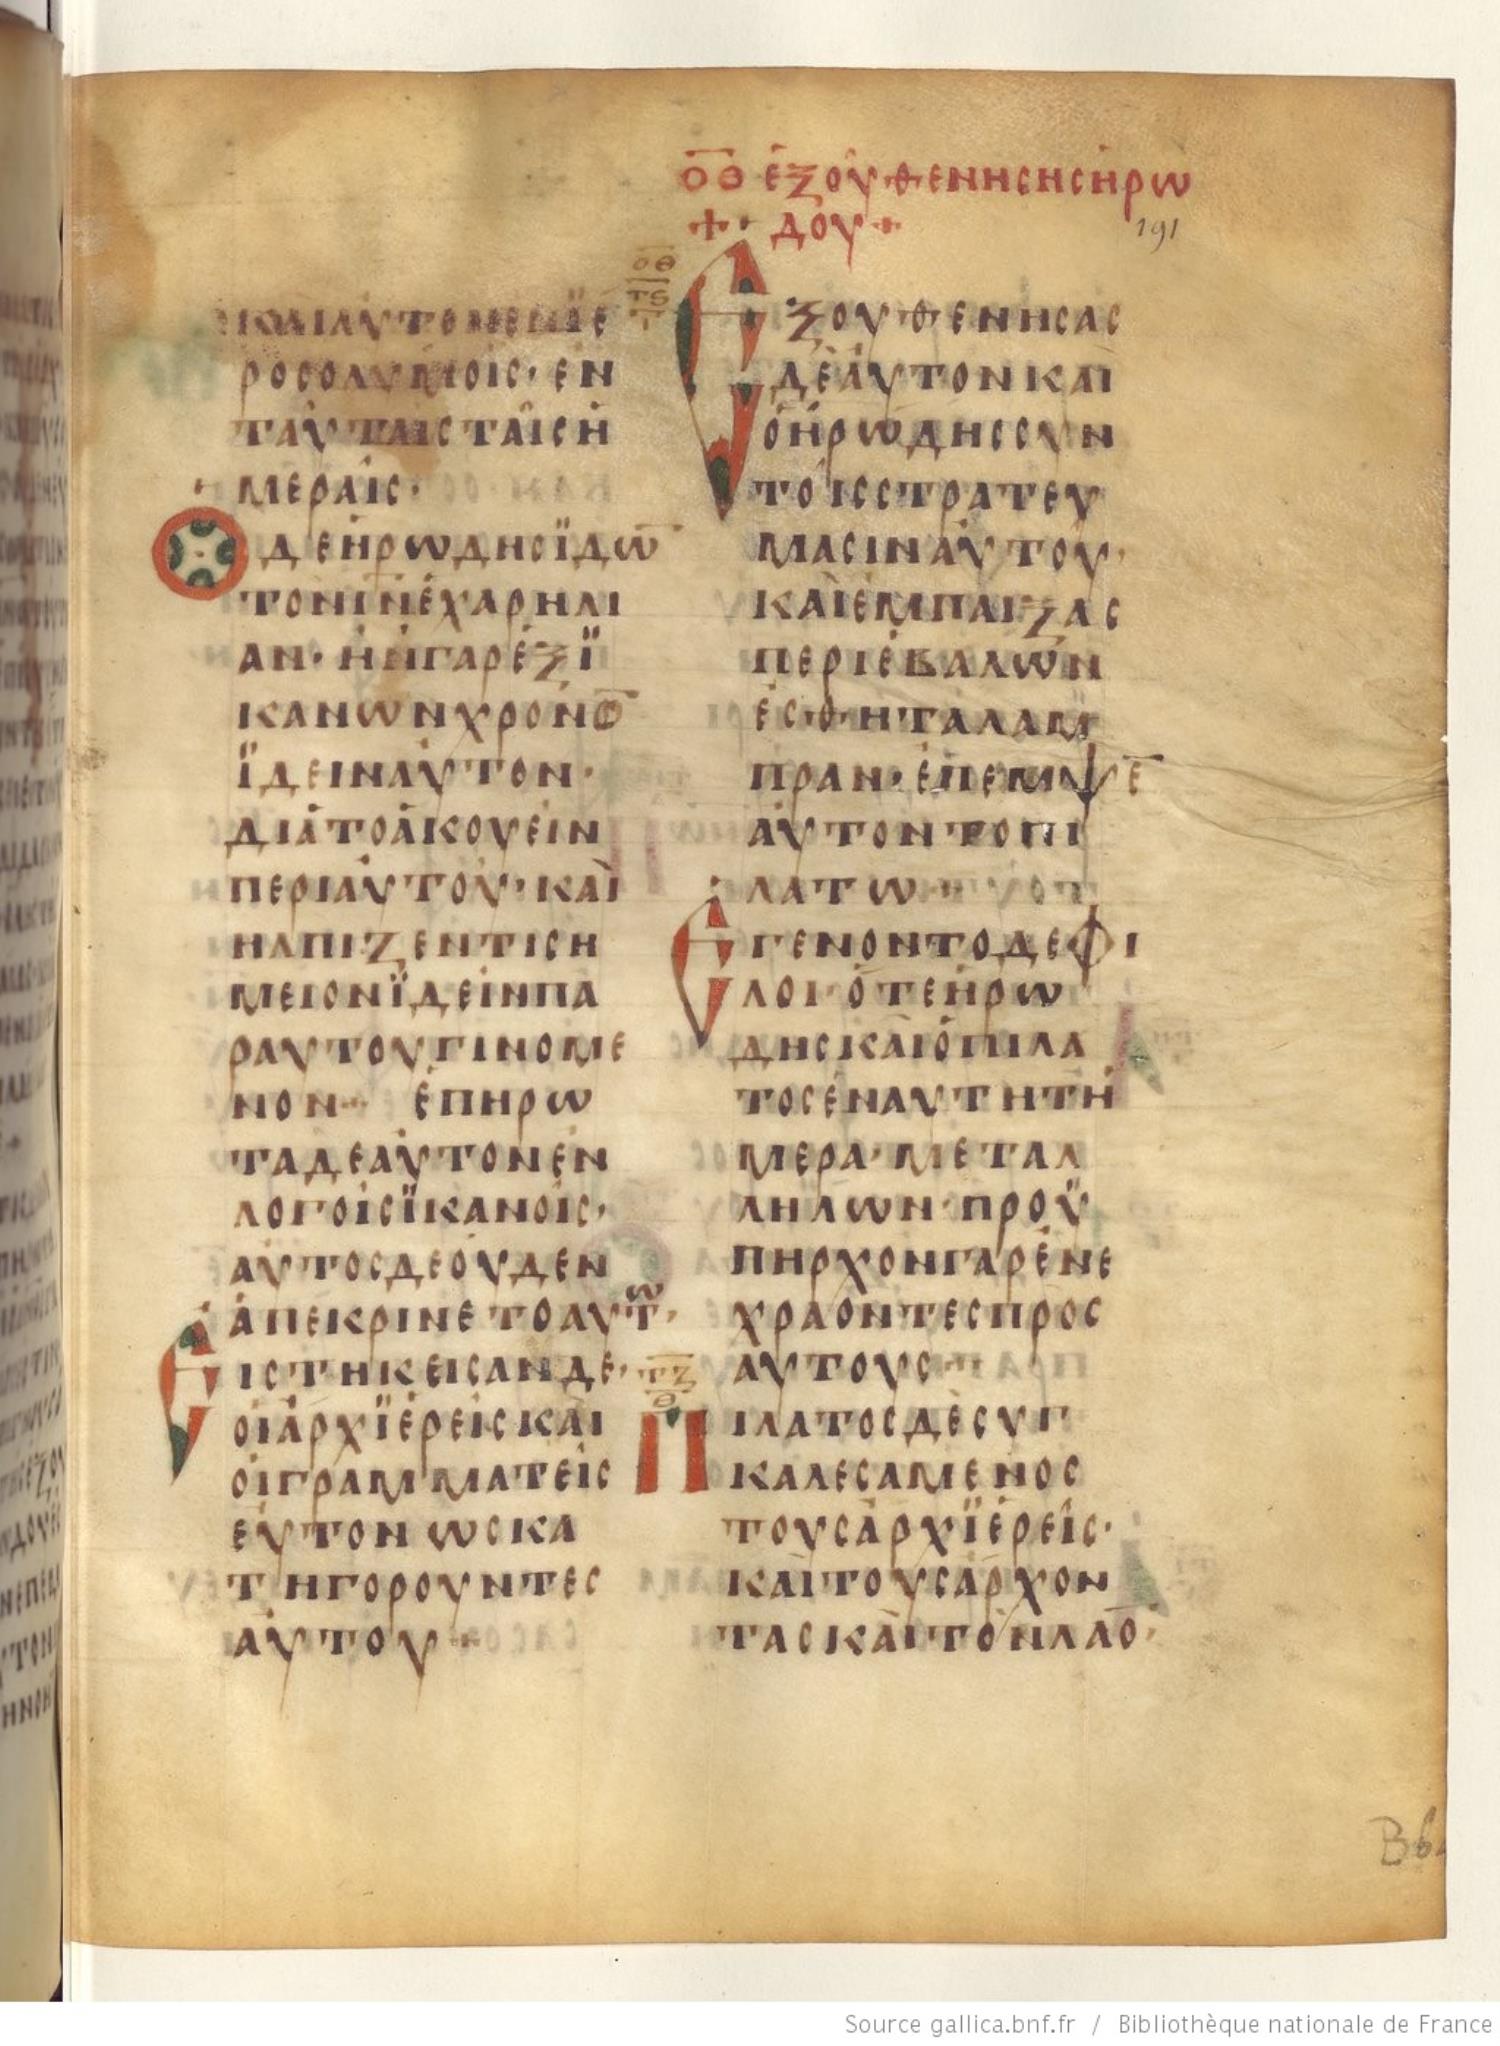 ΟΘ ἐξουθενησης ηρω
+ δου +
191
ΟΘ
ΤϚ
Ι
ΚΑΙΑΥΤΟΝΕΝΪΕ
ΡΟΣΟΛΥΜΟΙΣ· ΕΝ
ΤΑΥΤΑΙΣΤΑΙΣΗ
ΜΕΡΑΙΣ·
ΟΔΕΗΡΩΔΗΣΪΔΩ̅
ΤΟΝΙ̅Ν̅ΕΧΑΡΗΛΙ
ΑΝ· ΗΝΓΑΡΕΞΪ
ΚΑΝΩΝΧΡΟΝΩ̅
ΪΔΕΙΝΑΥΤΟΝ·
ΔΙΑΤΟΑΚΟΥΕΙΝ
ΠΕΡΙΑΥΤΟΥ· ΚΑΙ
ΗΛΠΙΖΕΝΤΙΣΗ
ΜΕΙΟΝΪΔΕΙΝΠΑ
ΡΑΥΤΟΥΓΙΝΟΜΕ
ΝΟΝ· ΕΠΗΡΩ
ΤΑΔΕΑΥΤΟΝΕΝ
ΛΟΓΟΙΣΪΚΑΝΟΙΣ·
ΑΥΤΟΣΔΕΟΥΔΕΝ
ΑΠΕΚΡΙΝΕΤΟΑΥΤΩ·
ΕΙΣΤΗΚΕΙΣΑΝΔΕ·
ΟΙΑΡΧΪΕΡΕΙΣΚΑΙ
ΟΙΓΡΑΜΜΑΤΕΙΣ
ΕΥΤΟΝΩΣΚΑ
ΤΗΓΟΡΟΥΝΤΕΣ
ΑΥΤΟΥ·
ΕΞΟΥΘΕΝΗΣΑΣ
ΔΕΑΥΤΟΝΚΑΙ
ΟΗΡΩΔΗΣΣΥΝ
ΤΟΙΣΣΤΡΑΤΕΥ
ΜΑΣΙΝΑΥΤΟΥ·
ΚΑΙΕΜΠΑΙΞΑΣ
ΠΕΡΙΕΒΑΛΩΝ
ΕΣΘΗΤΑΛΑΜ
ΠΡΑΝ· ΕΠΕΜΨΕ̅
ΑΥΤΟΝΤΟΠΙ
ΛΑΤΩ·
ΕΓΕΝΟΝΤΟΔΕΦΙ
ΛΟΙ· ΟΤΕΗΡΩ
ΔΗΣΚΑΙΟΠΙΛΑ
ΤΟΣΕΝΑΥΤΗΤΗ
ΜΕΡΑ· ΜΕΤΑΛ
ΛΗΛΩΝ· ΠΡΟΫ
ΠΗΡΧΟΝΓΑΡΕΝΕ
ΧΡΑΟΝΤΕΣΠΡΟΣ
ΑΥΤΟΥΣ·
ΤΖ
Θ
ΠΙΛΑΤΟΣΔΕΣΥΓ
ΚΑΛΕΣΑΜΕΝΟΣ
ΤΟΥΣΑΡΧΪΕΡΕΙΣ·
ΚΑΙΤΟΥΣΑΡΧΟΝ
ΤΑΣΚΑΙΤΟΝΛΑΟ̅·
Source gallica.bnf.fr / Bibliothèque nationale de France